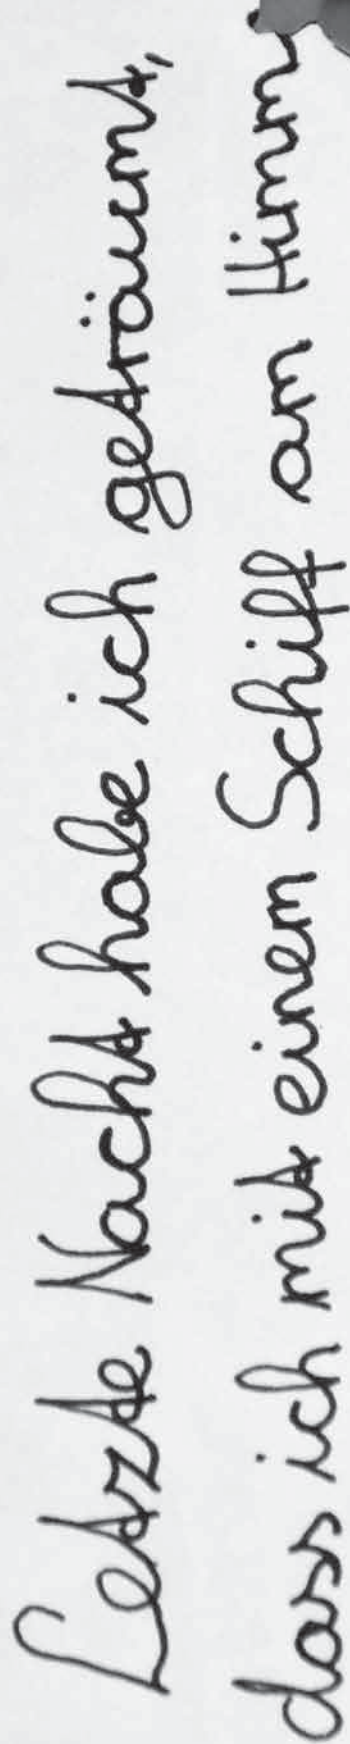 Letzte Nacht habe ich geträumt,
dass ich mit einem Schiff am